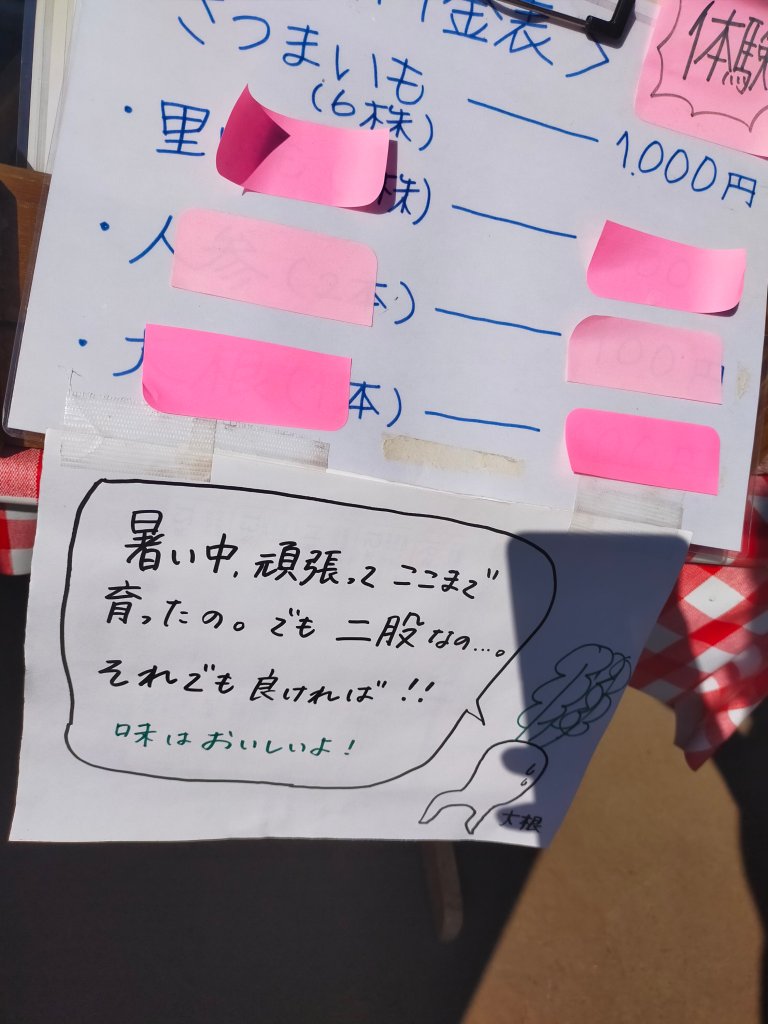 料金表 〉
さつまいも
(6株) 1.000円
体験
・里 株)
・人参(2本)
100円
・大根( 本)
暑い中、頑張ってここまで
育ったの。でも二股なの…。
それでも良ければ!!
味はおいしいよ!
大根